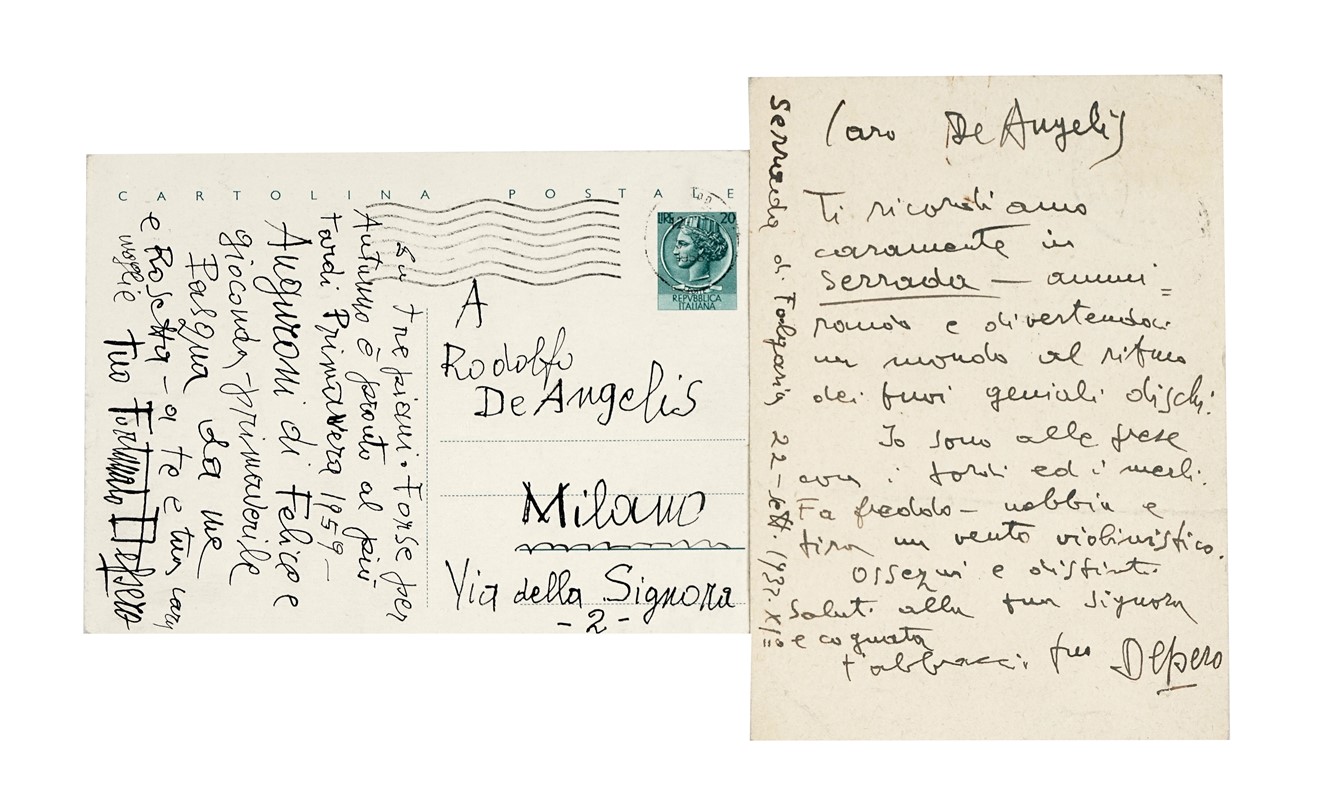 CARTOLINA POSTALE
LIRE 20
REPVBBLICA
ITALIANA
su tre piani. Forse per
Autunno è pronto al più
tardi Primavera 1959 -
Auguroni di Felice e
gioconda - primaverile
Pasqua da me
e Rosetta - a te e tua cara
moglie tuo Fortunato Depero
A
Rodolfo
De Angelis
Milano
Via della Signora
- 2 -
Serrada di Folgaria 22 - sett. 1933. XIº
Caro De Angelis
Ti ricordiamo
caramente in
Serrada - ammi=
rando e divertendoci
un mondo al ritmo
dei tuoi geniali dischi.
Io sono alle prese
con i tordi ed i merli.
Fa freddo - nebbia e
tira un vento violinistico.
Ossequi e distinti
saluti alla tua signora
e cognata
t'abbraccia tuo Depero